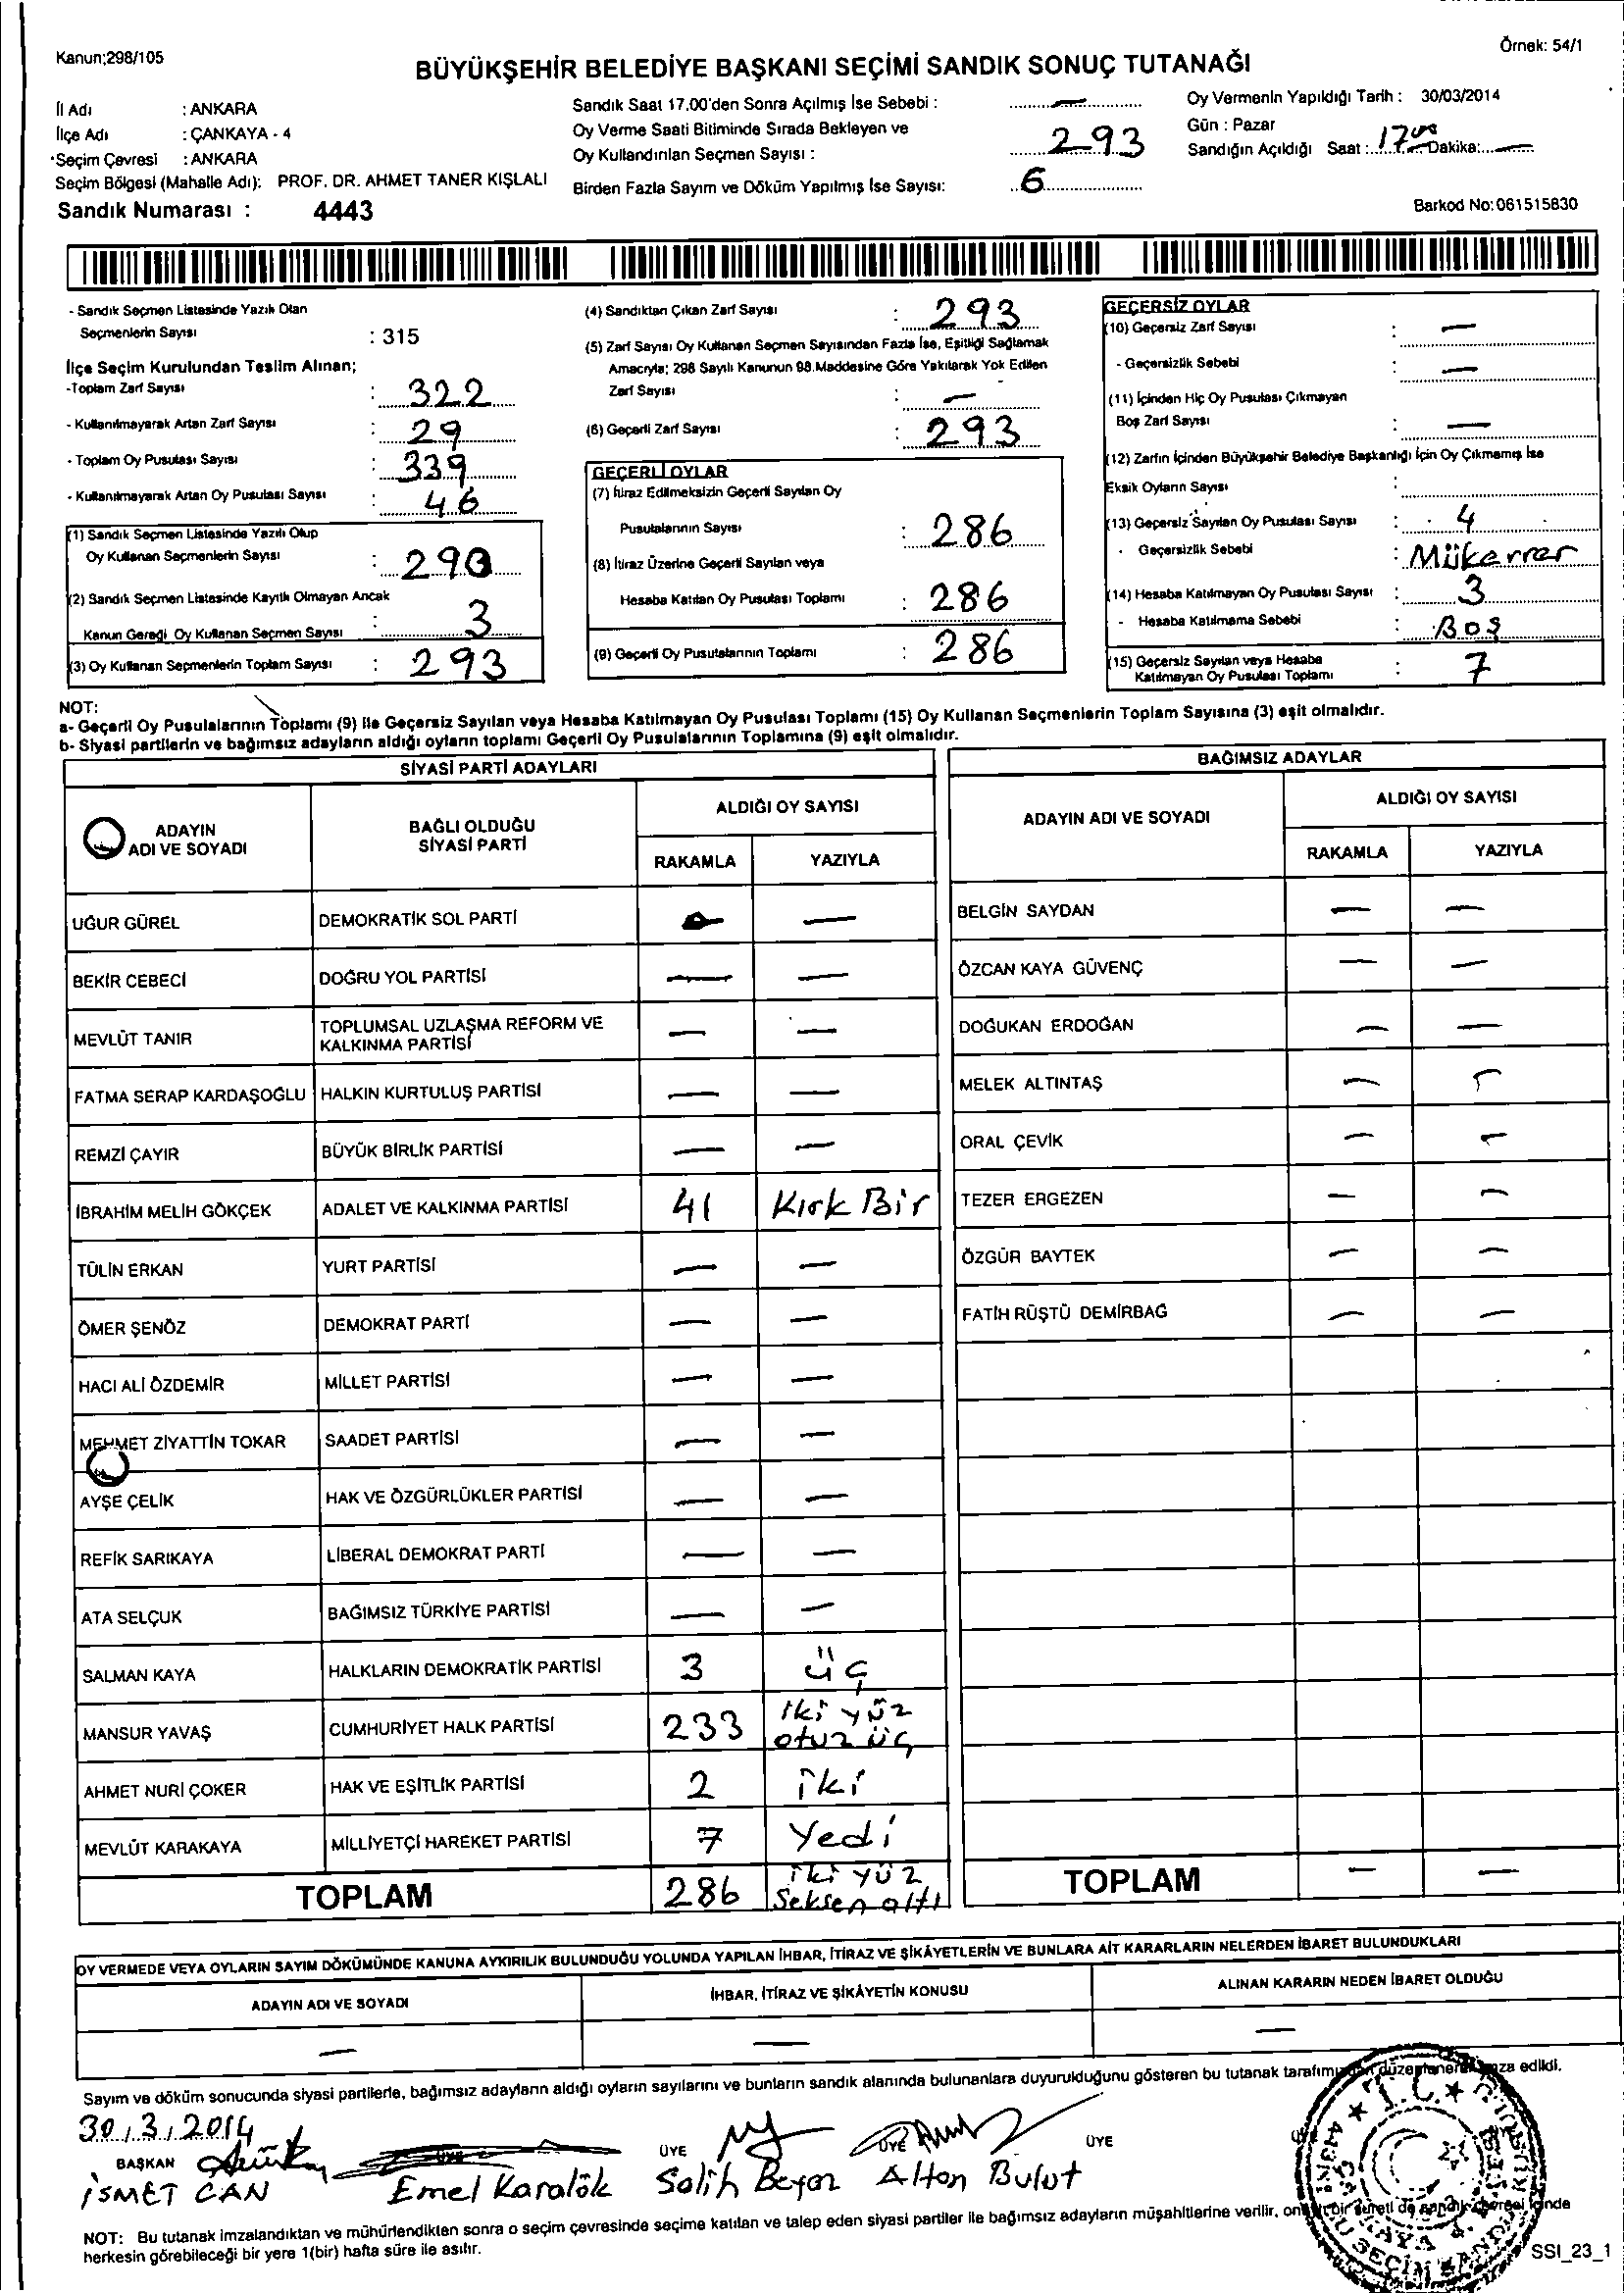 Kanun;298/105
Örnek: 54/1
BÜYÜKŞEHİR BELEDİYE BAŞKANI SEÇİMİ SANDIK SONUÇ TUTANAĞI
İl Adı : ANKARA
İlçe Adı : ÇANKAYA - 4
Seçim Çevresi : ANKARA
Seçim Bölgesi (Mahalle Adı): PROF. DR. AHMET TANER KIŞLALI
Sandık Numarası : 4443
Sandık Saat 17.00'den Sonra Açılmış İse Sebebi : —
Oy Verme Saati Bitiminde Sırada Bekleyen ve
Oy Kullandırılan Seçmen Sayısı : 293
Birden Fazla Sayım ve Döküm Yapılmış İse Sayısı: 6
Oy Vermenin Yapıldığı Tarih : 30/03/2014
Gün : Pazar
Sandığın Açıldığı Saat : 17:00 Dakika: —
Barkod No:061515830
- Sandık Seçmen Listesinde Yazılı Olan
Seçmenlerin Sayısı : 315
İlçe Seçim Kurulundan Teslim Alınan;
-Toplam Zarf Sayısı : 322
- Kullanılmayarak Artan Zarf Sayısı : 29
- Toplam Oy Pusulası Sayısı : 339
- Kullanılmayarak Artan Oy Pusulası Sayısı : 46
(1) Sandık Seçmen Listesinde Yazılı Olup
Oy Kullanan Seçmenlerin Sayısı : 290
(2) Sandık Seçmen Listesinde Kayıtlı Olmayan Ancak
Kanun Gereği Oy Kullanan Seçmen Sayısı : 3
(3) Oy Kullanan Seçmenlerin Toplam Sayısı : 293
(4) Sandıktan Çıkan Zarf Sayısı : 293
(5) Zarf Sayısı Oy Kullanan Seçmen Sayısından Fazla İse, Eşitliği Sağlamak
Amacıyla; 298 Sayılı Kanunun 98.Maddesine Göre Yakılarak Yok Edilen
Zarf Sayısı : —
(6) Geçerli Zarf Sayısı : 293
GEÇERLİ OYLAR
(7) İtiraz Edilmeksizin Geçerli Sayılan Oy
Pusulalarının Sayısı : 286
(8) İtiraz Üzerine Geçerli Sayılan veya
Hesaba Katılan Oy Pusulası Toplamı : 286
(9) Geçerli Oy Pusulalarının Toplamı : 286
GEÇERSİZ OYLAR
(10) Geçersiz Zarf Sayısı : —
- Geçersizlik Sebebi : —
(11) İçinden Hiç Oy Pusulası Çıkmayan
Boş Zarf Sayısı : —
(12) Zarfın İçinden Büyükşehir Belediye Başkanlığı İçin Oy Çıkmamış İse
Eksik Oyların Sayısı :
(13) Geçersiz Sayılan Oy Pusulası Sayısı : 4
- Geçersizlik Sebebi : Mükerrer
(14) Hesaba Katılmayan Oy Pusulası Sayısı : 3
- Hesaba Katılmama Sebebi : Boş
(15) Geçersiz Sayılan veya Hesaba
Katılmayan Oy Pusulası Toplamı : 7
NOT:
a- Geçerli Oy Pusulalarının Toplamı (9) ile Geçersiz Sayılan veya Hesaba Katılmayan Oy Pusulası Toplamı (15) Oy Kullanan Seçmenlerin Toplam Sayısına (3) eşit olmalıdır.
b- Siyasi partilerin ve bağımsız adayların aldığı oyların toplamı Geçerli Oy Pusulalarının Toplamına (9) eşit olmalıdır.
SİYASİ PARTİ ADAYLARI
ADAYIN ADI VE SOYADI
BAĞLI OLDUĞU SİYASİ PARTİ
ALDIĞI OY SAYISI
RAKAMLA YAZIYLA
UĞUR GÜREL DEMOKRATİK SOL PARTİ — —
BEKİR CEBECİ DOĞRU YOL PARTİSİ — —
MEVLÜT TANIR TOPLUMSAL UZLAŞMA REFORM VE KALKINMA PARTİSİ — —
FATMA SERAP KARDAŞOĞLU HALKIN KURTULUŞ PARTİSİ — —
REMZİ ÇAYIR BÜYÜK BİRLİK PARTİSİ — —
İBRAHİM MELİH GÖKÇEK ADALET VE KALKINMA PARTİSİ 41 Kırk Bir
TÜLİN ERKAN YURT PARTİSİ — —
ÖMER ŞENÖZ DEMOKRAT PARTİ — —
HACI ALİ ÖZDEMİR MİLLET PARTİSİ — —
MEHMET ZİYATTİN TOKAR SAADET PARTİSİ — —
AYŞE ÇELİK HAK VE ÖZGÜRLÜKLER PARTİSİ — —
REFİK SARIKAYA LİBERAL DEMOKRAT PARTİ — —
ATA SELÇUK BAĞIMSIZ TÜRKİYE PARTİSİ — —
SALMAN KAYA HALKLARIN DEMOKRATİK PARTİSİ 3 üç
MANSUR YAVAŞ CUMHURİYET HALK PARTİSİ 233 iki yüz otuz üç
AHMET NURİ ÇOKER HAK VE EŞİTLİK PARTİSİ 2 iki
MEVLÜT KARAKAYA MİLLİYETÇİ HAREKET PARTİSİ 7 Yedi
TOPLAM 286 iki yüz Seksen altı
BAĞIMSIZ ADAYLAR
ADAYIN ADI VE SOYADI
ALDIĞI OY SAYISI
RAKAMLA YAZIYLA
BELGİN SAYDAN — —
ÖZCAN KAYA GÜVENÇ — —
DOĞUKAN ERDOĞAN — —
MELEK ALTINTAŞ — —
ORAL ÇEVİK — —
TEZER ERGEZEN — —
ÖZGÜR BAYTEK — —
FATİH RÜŞTÜ DEMİRBAĞ — —
TOPLAM — —
OY VERMEDE VEYA OYLARIN SAYIM DÖKÜMÜNDE KANUNA AYKIRILIK BULUNDUĞU YOLUNDA YAPILAN İHBAR, İTİRAZ VE ŞİKÂYETLERİN VE BUNLARA AİT KARARLARIN NELERDEN İBARET BULUNDUKLARI
ADAYIN ADI VE SOYADI
İHBAR, İTİRAZ VE ŞİKÂYETİN KONUSU
ALINAN KARARIN NEDEN İBARET OLDUĞU
— — —
Sayım ve döküm sonucunda siyasi partilerle, bağımsız adayların aldığı oyların sayılarını ve bunların sandık alanında bulunanlara duyurulduğunu gösteren bu tutanak tarafımızdan düzenlenerek imza edildi.
30.3.2014
BAŞKAN ÜYE ÜYE ÜYE
İSMET CAN Emel Karalök Salih Beyaz Altan Bulut
NOT: Bu tutanak imzalandıktan ve mühürlendikten sonra o seçim çevresinde seçime katılan ve talep eden siyasi partiler ile bağımsız adayların müşahitlerine verilir, onaylı bir sureti de sandık çevresi içinde
herkesin görebileceği bir yere 1(bir) hafta süre ile asılır.
T.C.
SSI_23_1